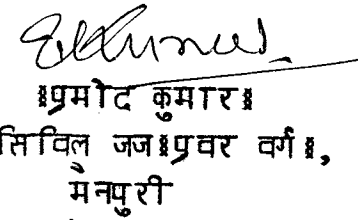 ॥प्रमोद कुमार॥
सिविल जज॥प्रवर वर्ग॥,
मैनपुरी